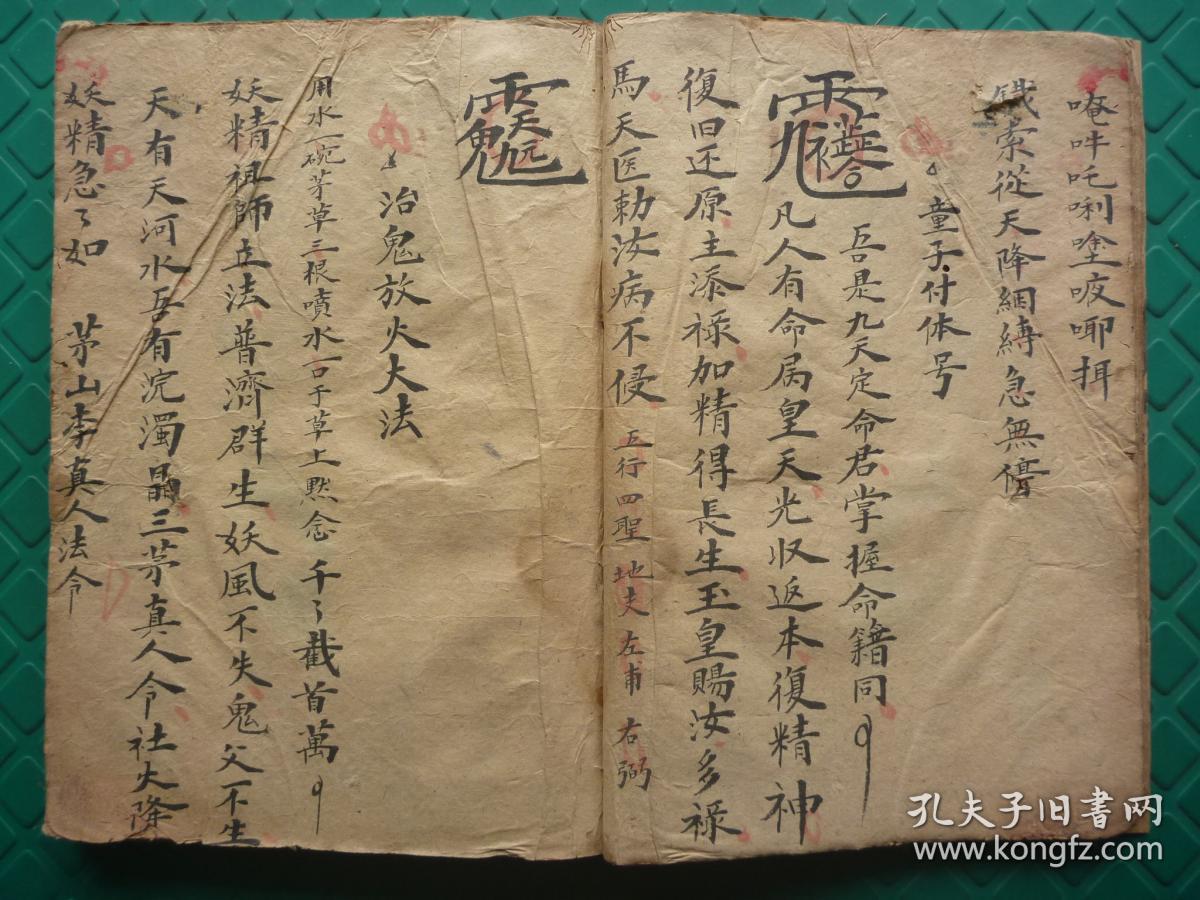 唵吽吒唎塗㕼唧揖
鉄索從天降綑縛急無停
童子付体号
吾是九天定命君掌握命籍同
凡人有命屬皇天光收返本復精神
復旧还原主添祿加精得長生玉皇賜汝多祿
馬天医勅汝病不侵 五行四聖 地夫 左甫 右弼
治鬼放火大法
用水一碗茅草三根噴水一口于草上黙念 千々截首萬
妖精祖師立法普濟群生妖風不失鬼父不生
天有天河水吾有浣濁晶三茅真人令社火降
妖精急々如 茅山李真人法令
孔夫子旧書网
www.kongfz.com